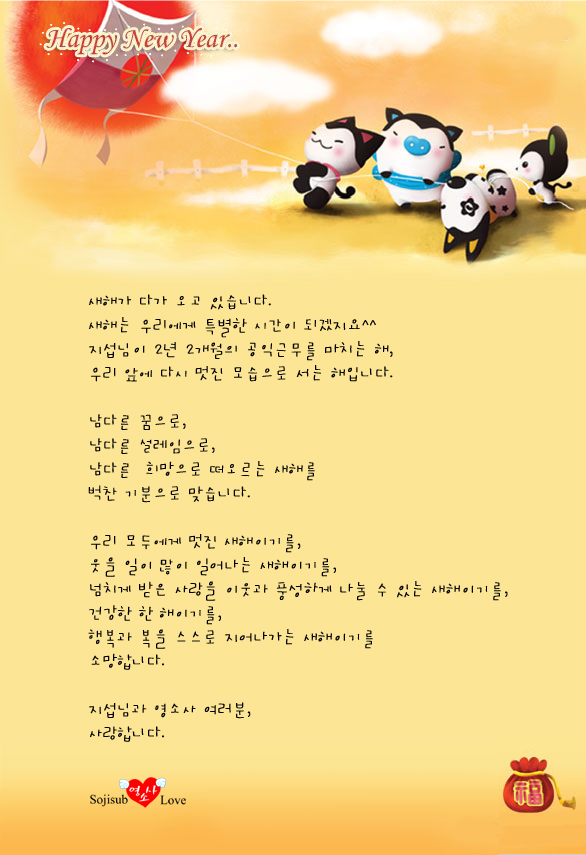 Happy New Year..
새해가 다가 오고 있습니다.
새해는 우리에게 특별한 시간이 되겠지요^^
지섭님이 2년 2개월의 공익근무를 마치는 해,
우리 앞에 다시 멋진 모습으로 서는 해입니다.
남다른 꿈으로,
남다른 설레임으로,
남다른 희망으로 떠오르는 새해를
벅찬 기분으로 맞습니다.
우리 모두에게 멋진 새해이기를,
웃을 일이 많이 일어나는 새해이기를,
넘치게 받은 사랑을 이웃과 풍성하게 나눌 수 있는 새해이기를,
건강한 한 해이기를,
행복과 복을 스스로 지어나가는 새해이기를
소망합니다.
지섭님과 영소사 여러분,
사랑합니다.
Sojisub 영소사 Love
福